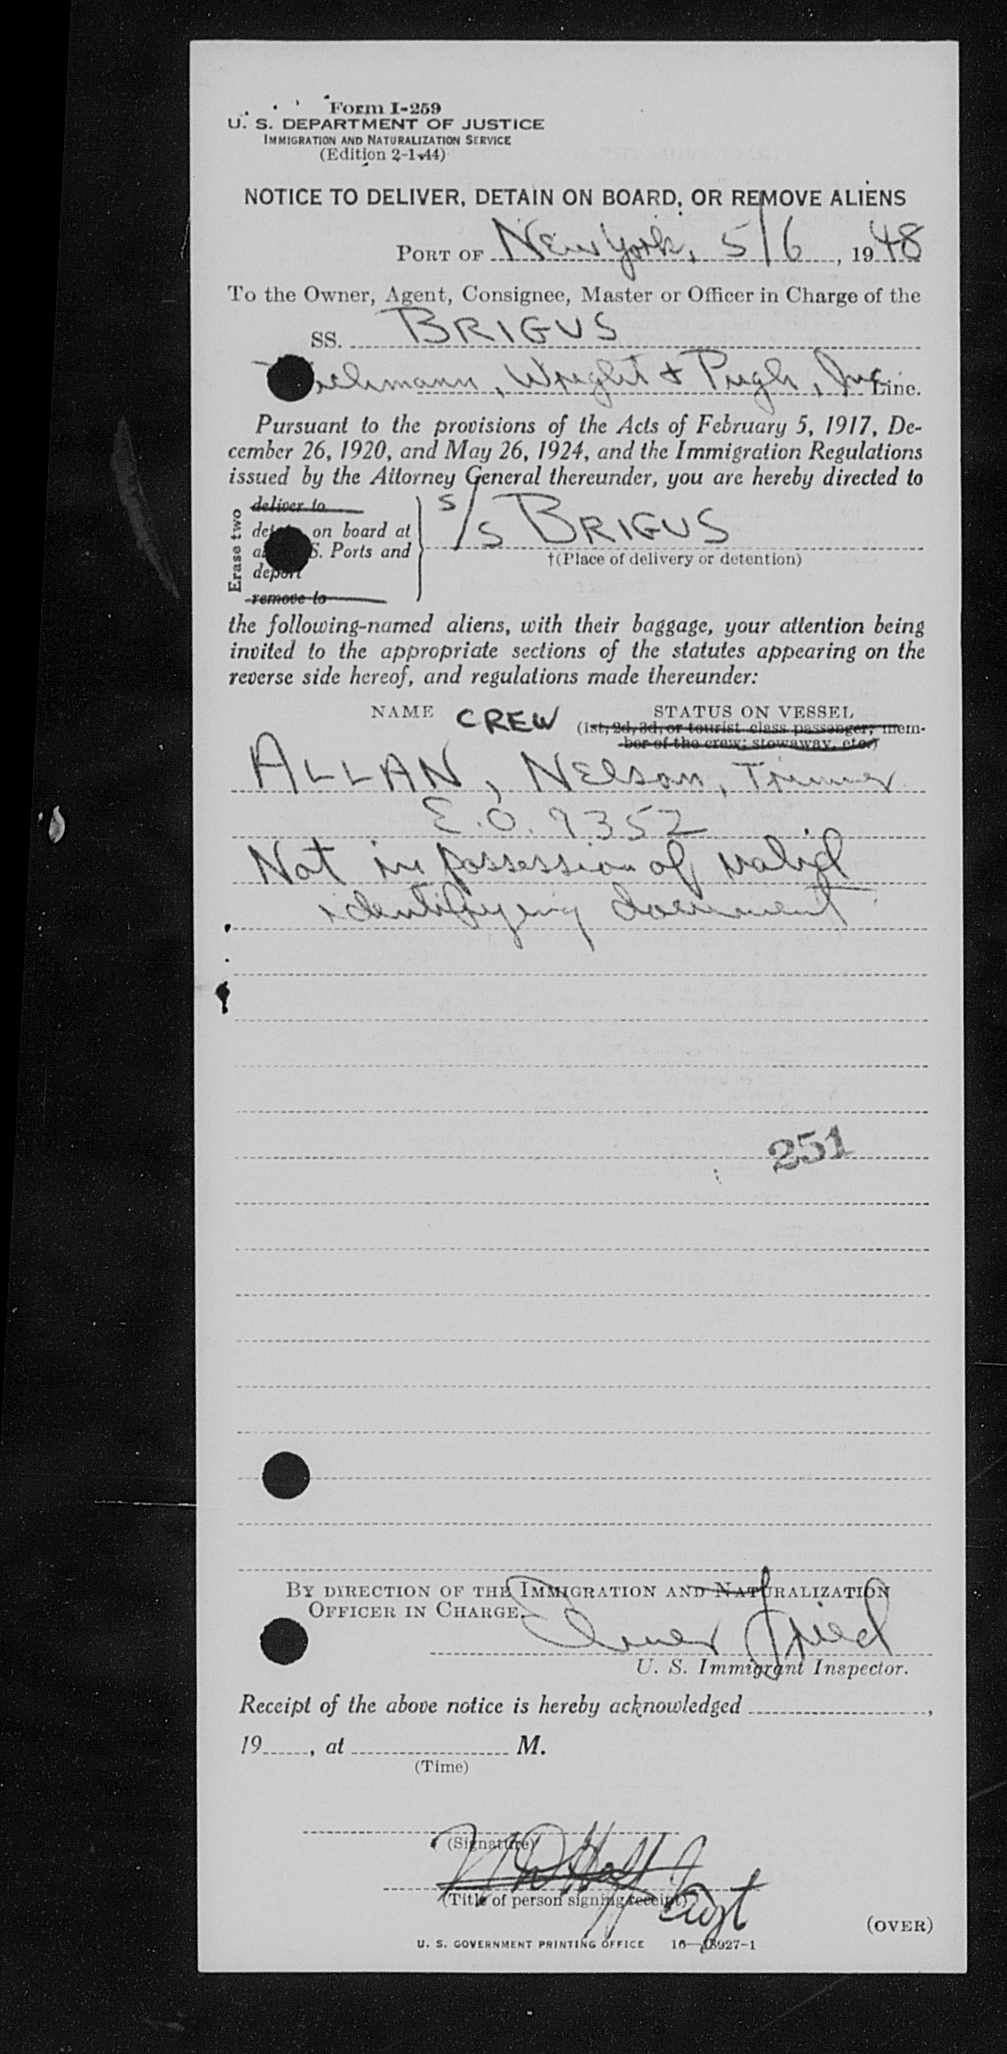 Form I-259
U. S. DEPARTMENT OF JUSTICE
IMMIGRATION AND NATURALIZATION SERVICE
(Edition 2-1-44)
NOTICE TO DELIVER, DETAIN ON BOARD, OR REMOVE ALIENS
PORT OF New York, 5/6, 1948
To the Owner, Agent, Consignee, Master or Officer in Charge of the
SS. BRIGUS
Wright & Pugh, Inc Line.
Pursuant to the provisions of the Acts of February 5, 1917, De-
cember 26, 1920, and May 26, 1924, and the Immigration Regulations
issued by the Attorney General thereunder, you are hereby directed to
Erase two
deliver to
on board at
S. Ports and
deport
remove to
S/S BRIGUS
†(Place of delivery or detention)
the following-named aliens, with their baggage, your attention being
invited to the appropriate sections of the statutes appearing on the
reverse side hereof, and regulations made thereunder:
NAME CREW STATUS ON VESSEL
(1st, 2d, 3d, or tourist class passenger; mem-
ber of the crew; stowaway, etc.)
ALLAN, Nelson, Trimmer
E.O. 9352
Not in possession of valid
identifying document
251
BY DIRECTION OF THE IMMIGRATION AND NATURALIZATION
OFFICER IN CHARGE.
Fried
U. S. Immigrant Inspector.
Receipt of the above notice is hereby acknowledged ,
19 , at M.
(Time)
(Signature)
(Title of person signing receipt)
(OVER)
U. S. GOVERNMENT PRINTING OFFICE 16—